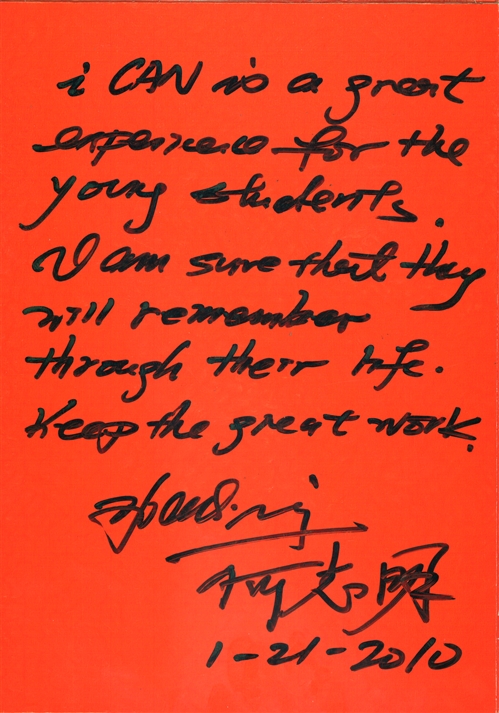 i CAN is a great
experience for the
young students.
I am sure that they
will remember
through their life.
Keep the great work.
志明
1-21-2010